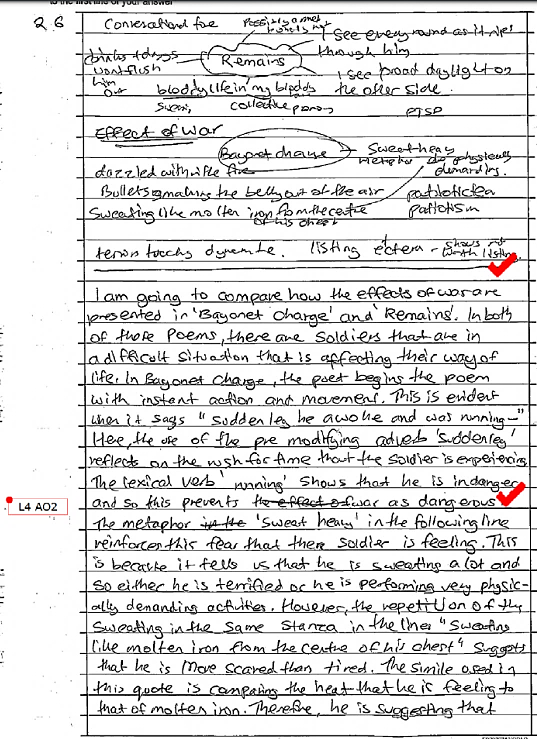 to the first line of your answer
26 Conversational
I see every round as it rips
through him
Remains
drinks + drugs
wont flush
him
out
I see broad daylight on
the other side.
bloody life in my bloody
collective
PTSD
Effect of war
Bayonet charge
Sweat heavy
physically
demanding.
dazzled with rifle fire
Bullets smacking the belly out of the air
patriotic tear
Sweating like molten iron from the centre
of his chest
patriotism
terrors touchy dynamite. listing etcetera - shows not
worth listing
I am going to compare how the effects of war are
presented in 'Bayonet Charge' and 'Remains'. In both
of those Poems, there are soldiers that are in
a difficult situation that is affecting their way of
life. In Bayonet Charge, the poet begins the poem
with instant action and movement. This is evident
when it says "Suddenley he awoke and was running-"
Here, the use of the pre modifying adverb 'suddenley'
reflects on the rush for time that the soldier is experiencing
The lexical verb 'running' shows that he is in danger
and so this presents the effect of war as dangerous
L4 AO2
The metaphor in the 'sweat heavy' in the following line
reinforces this fear that there soldier is feeling. This
is because it tells us that he is sweating a lot and
so either he is terrified or he is performing very physic-
ally demanding activities. However, the repetition of the
Sweating in the same stanza in the line "Sweating
like molten iron from the centre of his chest" suggests
that he is more scared than tired. The simile used in
this quote is comparing the heat that he is feeling to
that of molten iron. Therefore, he is suggesting that